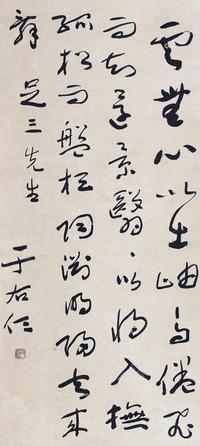 云無心以出岫鳥倦飛
而知還景翳翳以將入撫
孤松而盤桓陶淵明歸去來
辭 足三先生
于右任